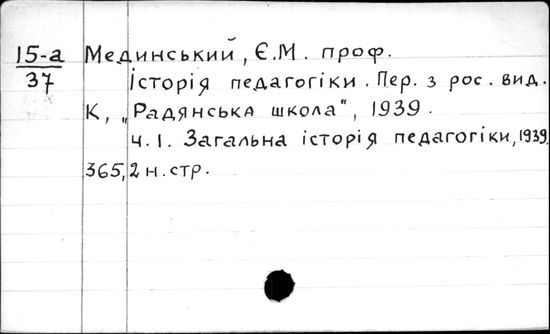 15-а Мединський, Є.М. проф.
37 Історія педагогіки. Пер. з рос. вид.
К, „Радянська школа", 1939.
ч.1. Загальна історія педагогіки, 1939.
365, 2 н. стр.